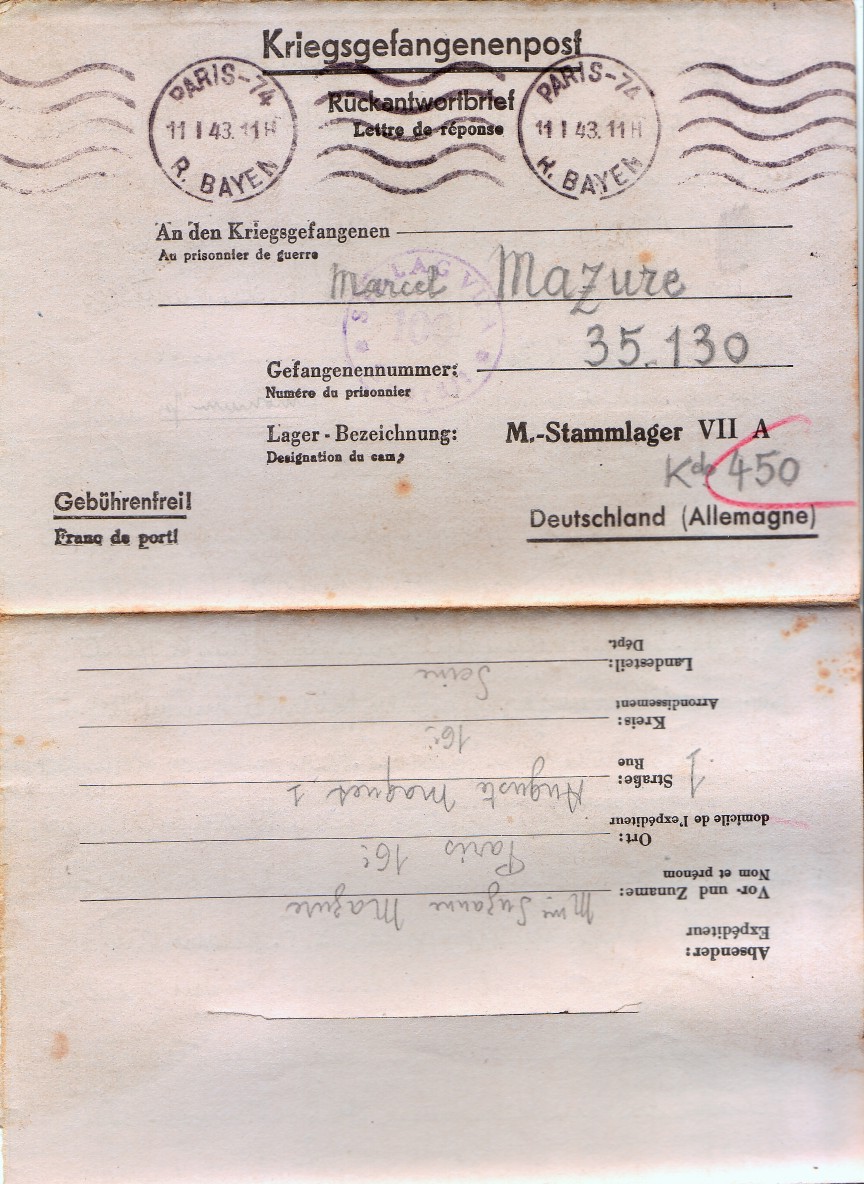 Kriegsgefangenenpost
PARIS-74
11 I 43. 11H
R. BAYEN
PARIS-74
11 I 43. 11H
R. BAYEN
Rückantwortbrief
Lettre de réponse
An den Kriegsgefangenen
Au prisonnier de guerre
Marcel Mazure
STALAG VII A
35.130
Gefangenennummer:
Numéro du prisonnier
Lager-Bezeichnung: M.-Stammlager VII A
Designation du camp
Kdo 450
Gebührenfrei!
Franc de port!
Deutschland (Allemagne)
Absender:
Expéditeur
Vor- und Zuname: Mme Suzanne Mazure
Nom et prénom
Ort: Paris 16e
domicile de l'expéditeur
Straße: 1 Auguste Maquet 1
Rue
Kreis: 16e
Arrondissement
Landesteil: Seine
Dépt.